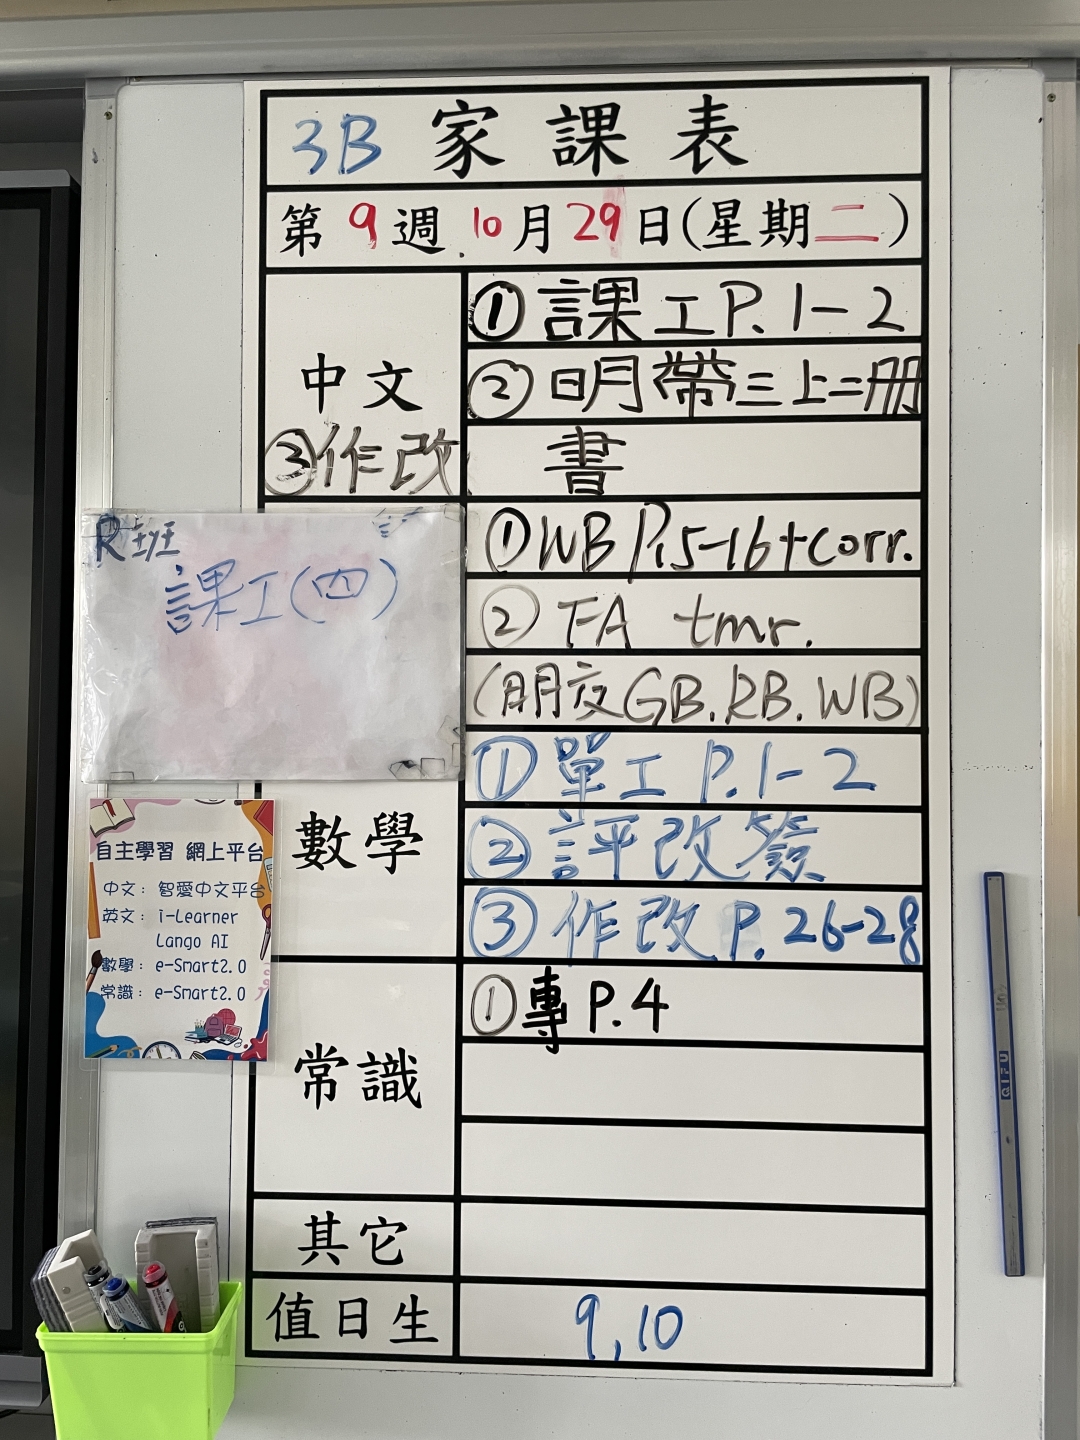 3B 家課表
第9週 10月29日(星期二)
中文
①課工P.1-2
②明月帶三上二冊
書
③作改
①WB P.15-16+corr.
②TA tmr.
(明交GB.RB.WB)
R班
課工(四)
數學
①單工 P.1-2
②評改簽
③作改P.26-28
自主學習 網上平台
中文: 智愛中文平台
英文: i-Learner
Lango AI
數學: e-Smart2.0
常識: e-Smart2.0
常識
①專P.4
其它
值日生
9,10
QIFU